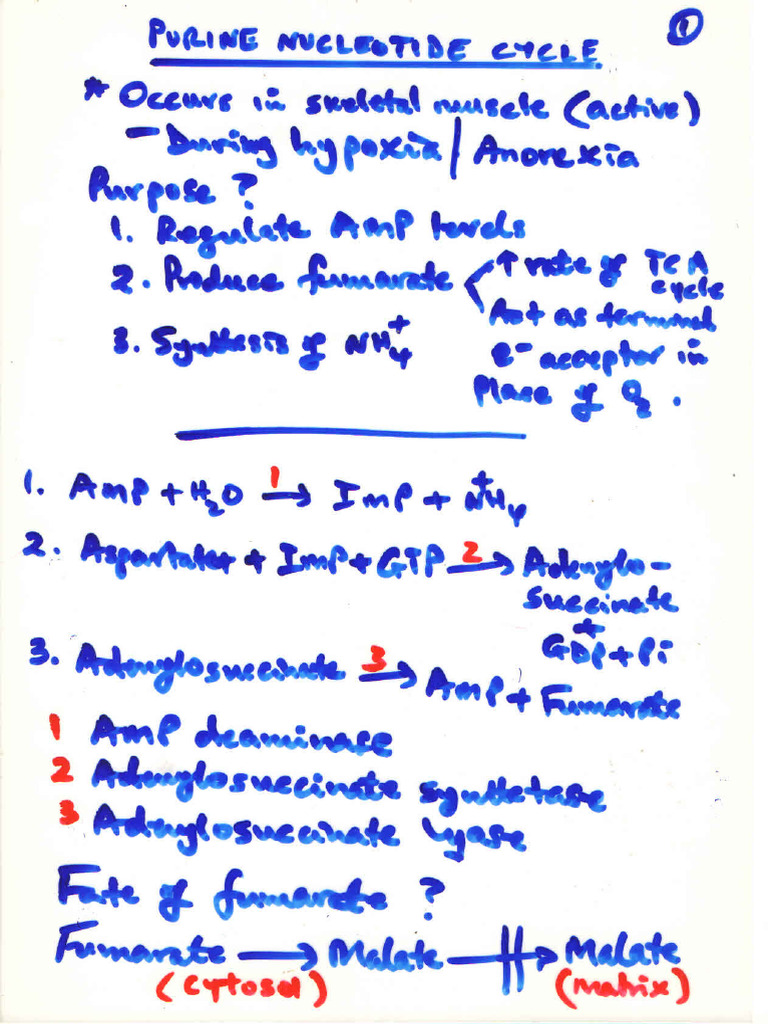 PURINE NUCLEOTIDE CYCLE
1
* Occurs in skeletal muscle (active)
- During hypoxia / Anorexia
Purpose?
1. Regulate AMP levels
2. Produce fumarate < ↑ rate of TCA cycle
Act as terminal
e⁻ acceptor in
Place of O₂.
3. Synthesis of NH₄⁺
1. AMP + H₂O 1→ IMP + NH₄⁺
2. Aspartate + IMP + GTP 2→ Adenylo-
succinate
+
GDP + Pi
3. Adenylosuccinate 3→ AMP + Fumarate
1 AMP deaminase
2 Adenylosuccinate synthetase
3 Adenylosuccinate lyase
Fate of fumarate?
Fumarate → Malate —||→ Malate
(cytosol) (matrix)